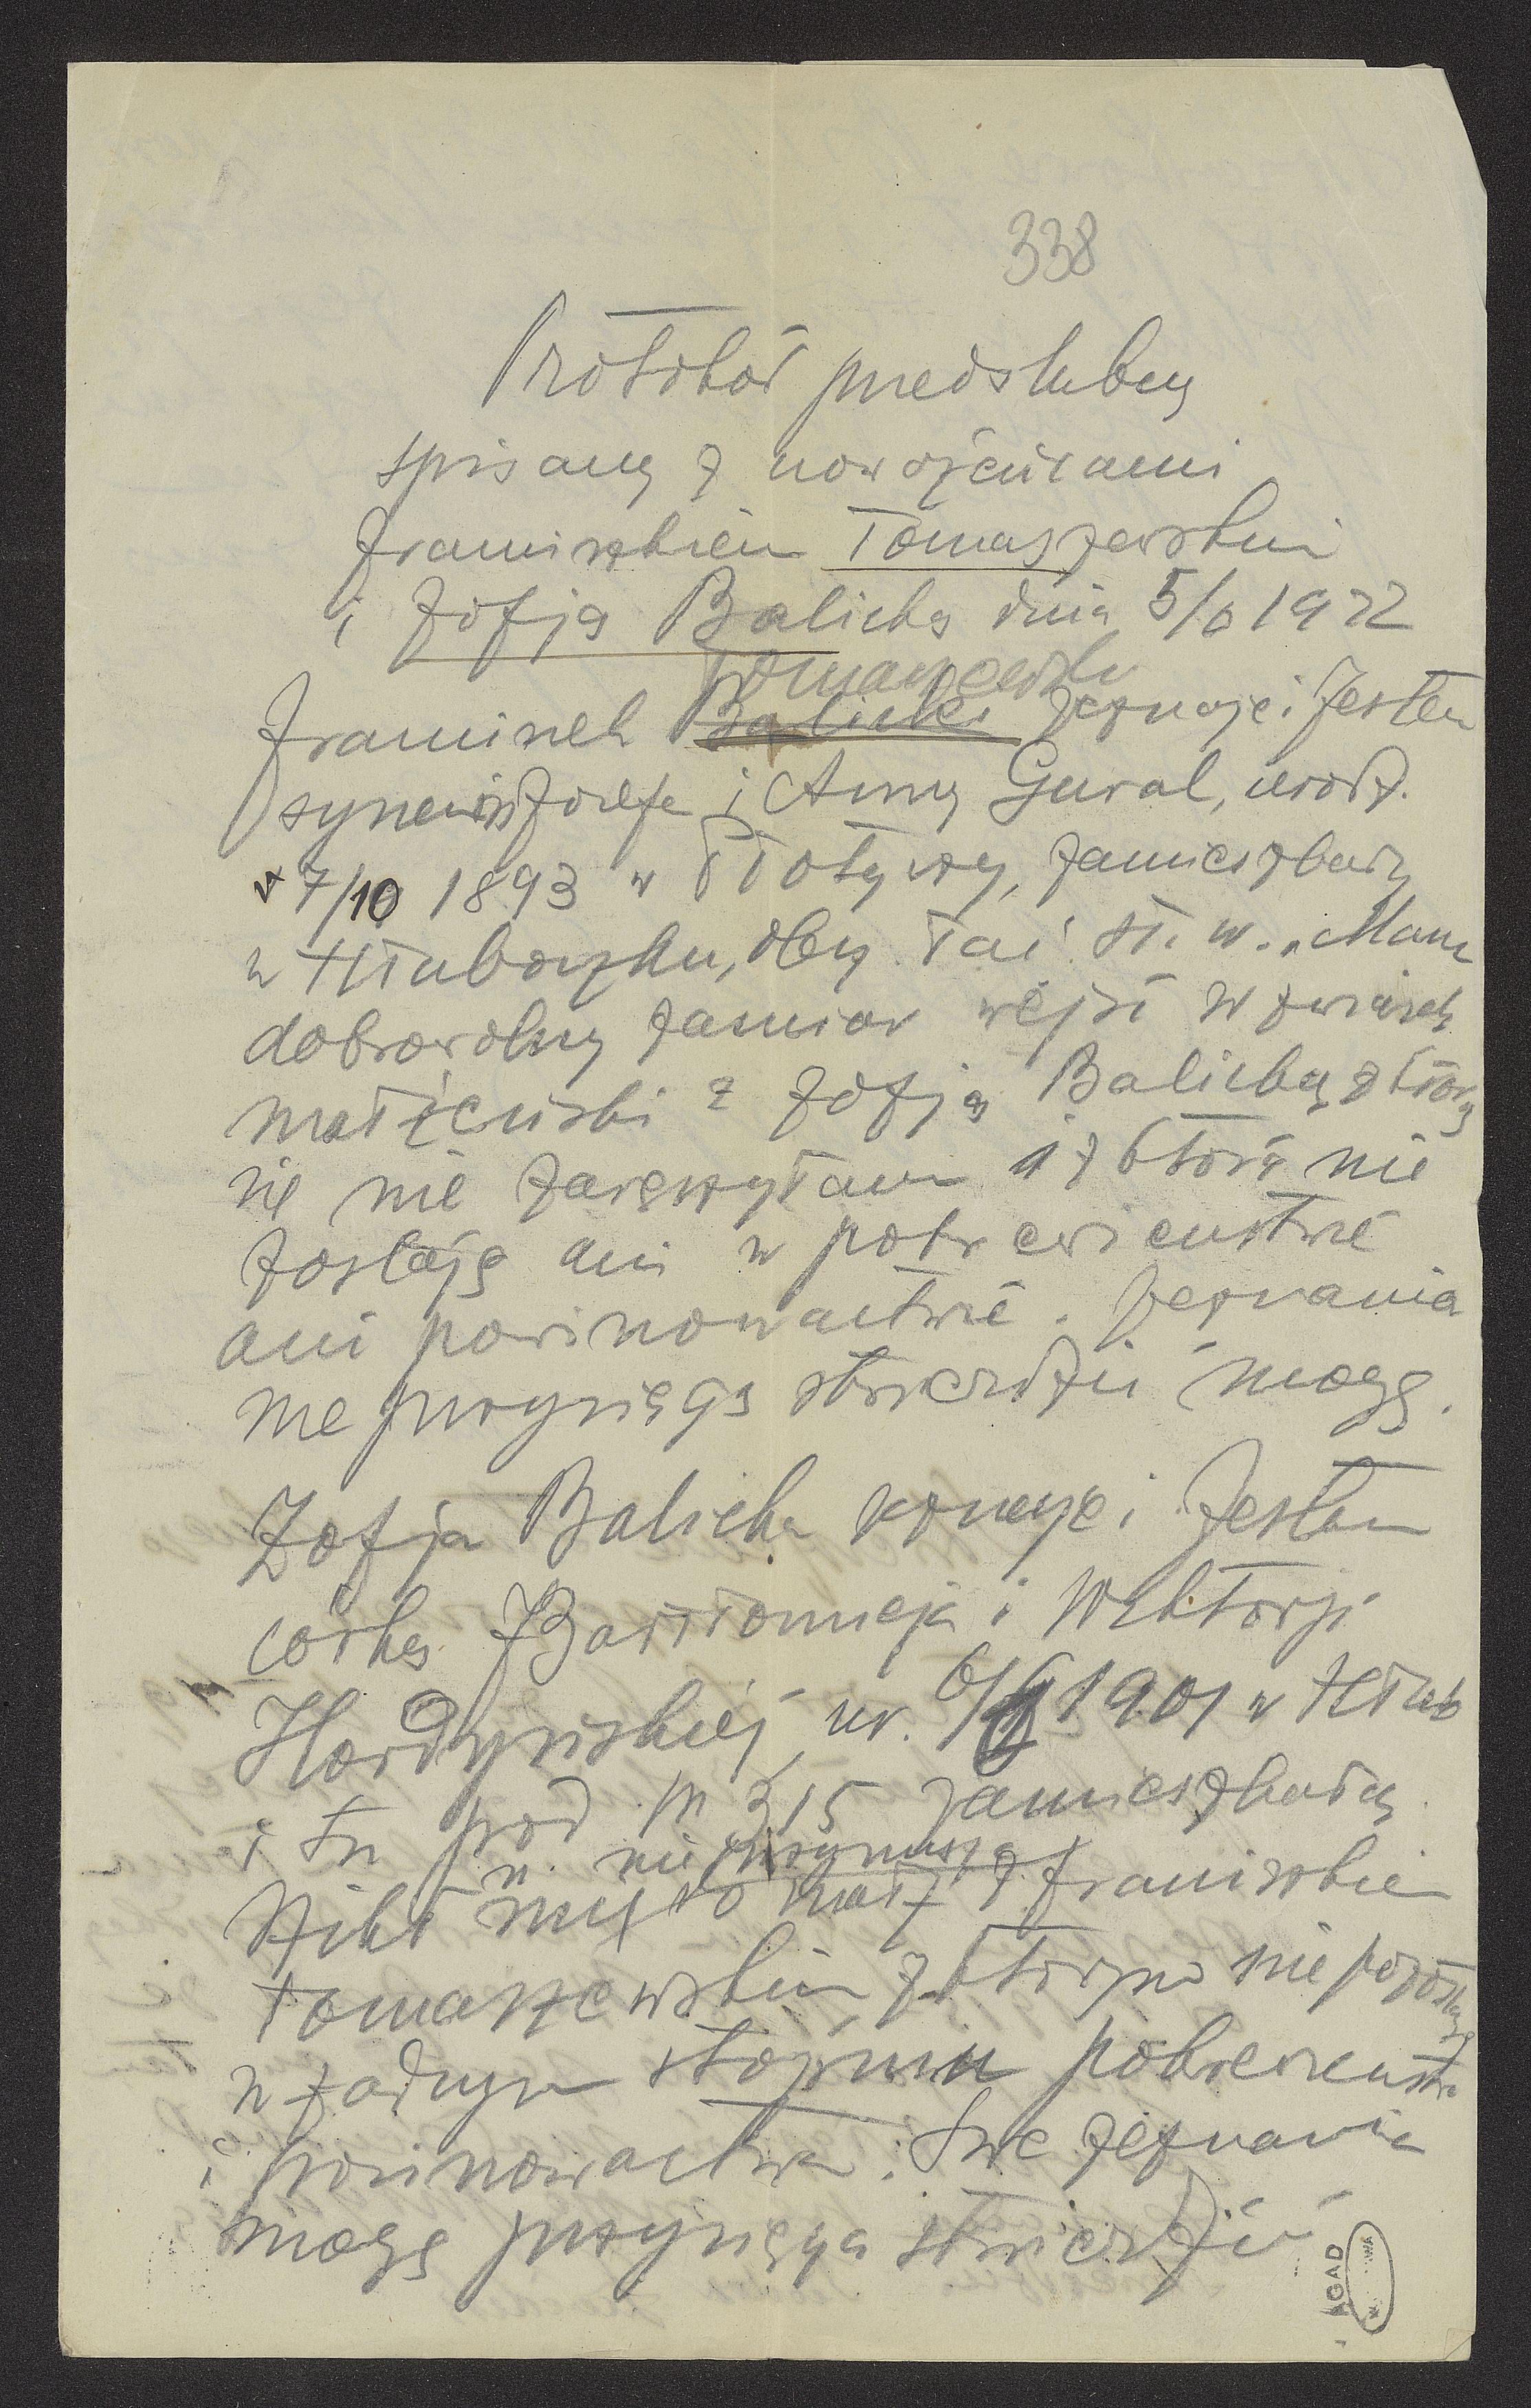 338
Protokół przedślubny
spisany z nowożeńcami
Franciszkiem Tomaszewskim
i Zofją Balicką dnia 5/6 1922
Tomaszewski
Franciszek Balicki zeznaje: Jestem
synem Józefa i Anny Gural, urodz.
7/10 1893 w Płotyczy, zamieszkały
w Hłuboczku, oby. łać. st. w. Mam
dobrowolny zamiar wejść w związek
małżeński z Zofją Balicką, z którą
się nie zaręczyłam i z którą nie
zostaję ani w pokrewieństwie
ani powinowactwie. Zeznania
me przysięgą stwierdzić mogę.
Zofja Balicka zeznaje: Jestem
córką Bartłomieja i Wiktorji
Hordyńskiej, ur. 1901 w Hłub
i tu pod nr 315 zamieszkałą
n. nie przymusza
Nikt mię do małż. z Franciszkiem
Tomaszewskim, z którym nie pozostaję
w żadnym stopniu pokrewieństwa
i powinowactwa. Swe zeznania
mogę przysięgą stwierdzić
AGAD